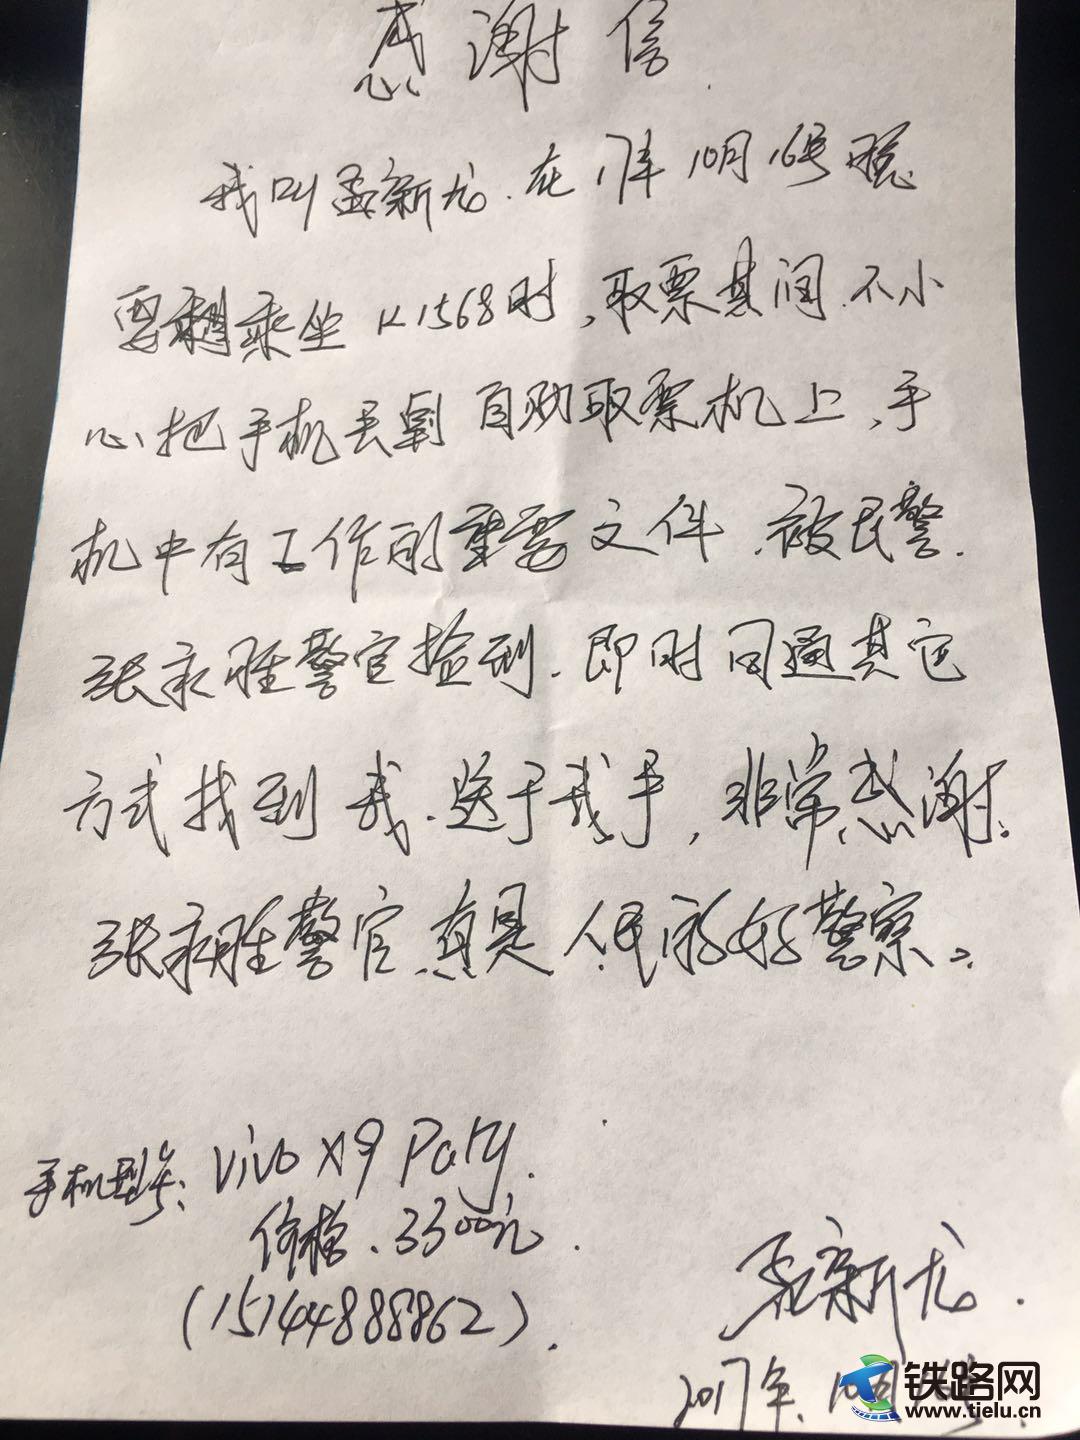 感谢信
我叫孟新龙.在17年10月16号晚
要乘坐K1568时,取票其间.不小
心把手机丢到自助取票机上,手
机中有工作的重要文件.被民警.
张永胜警官捡到.即时同通其它
方式找到我.送于我手,非常感谢.
张永胜警官真是人民的好警察。
手机型号:Vivo X9 Pary.
价格、3300元.
(15144888862).
孟新龙.
2017年.10月
铁路网
www.tielu.cn